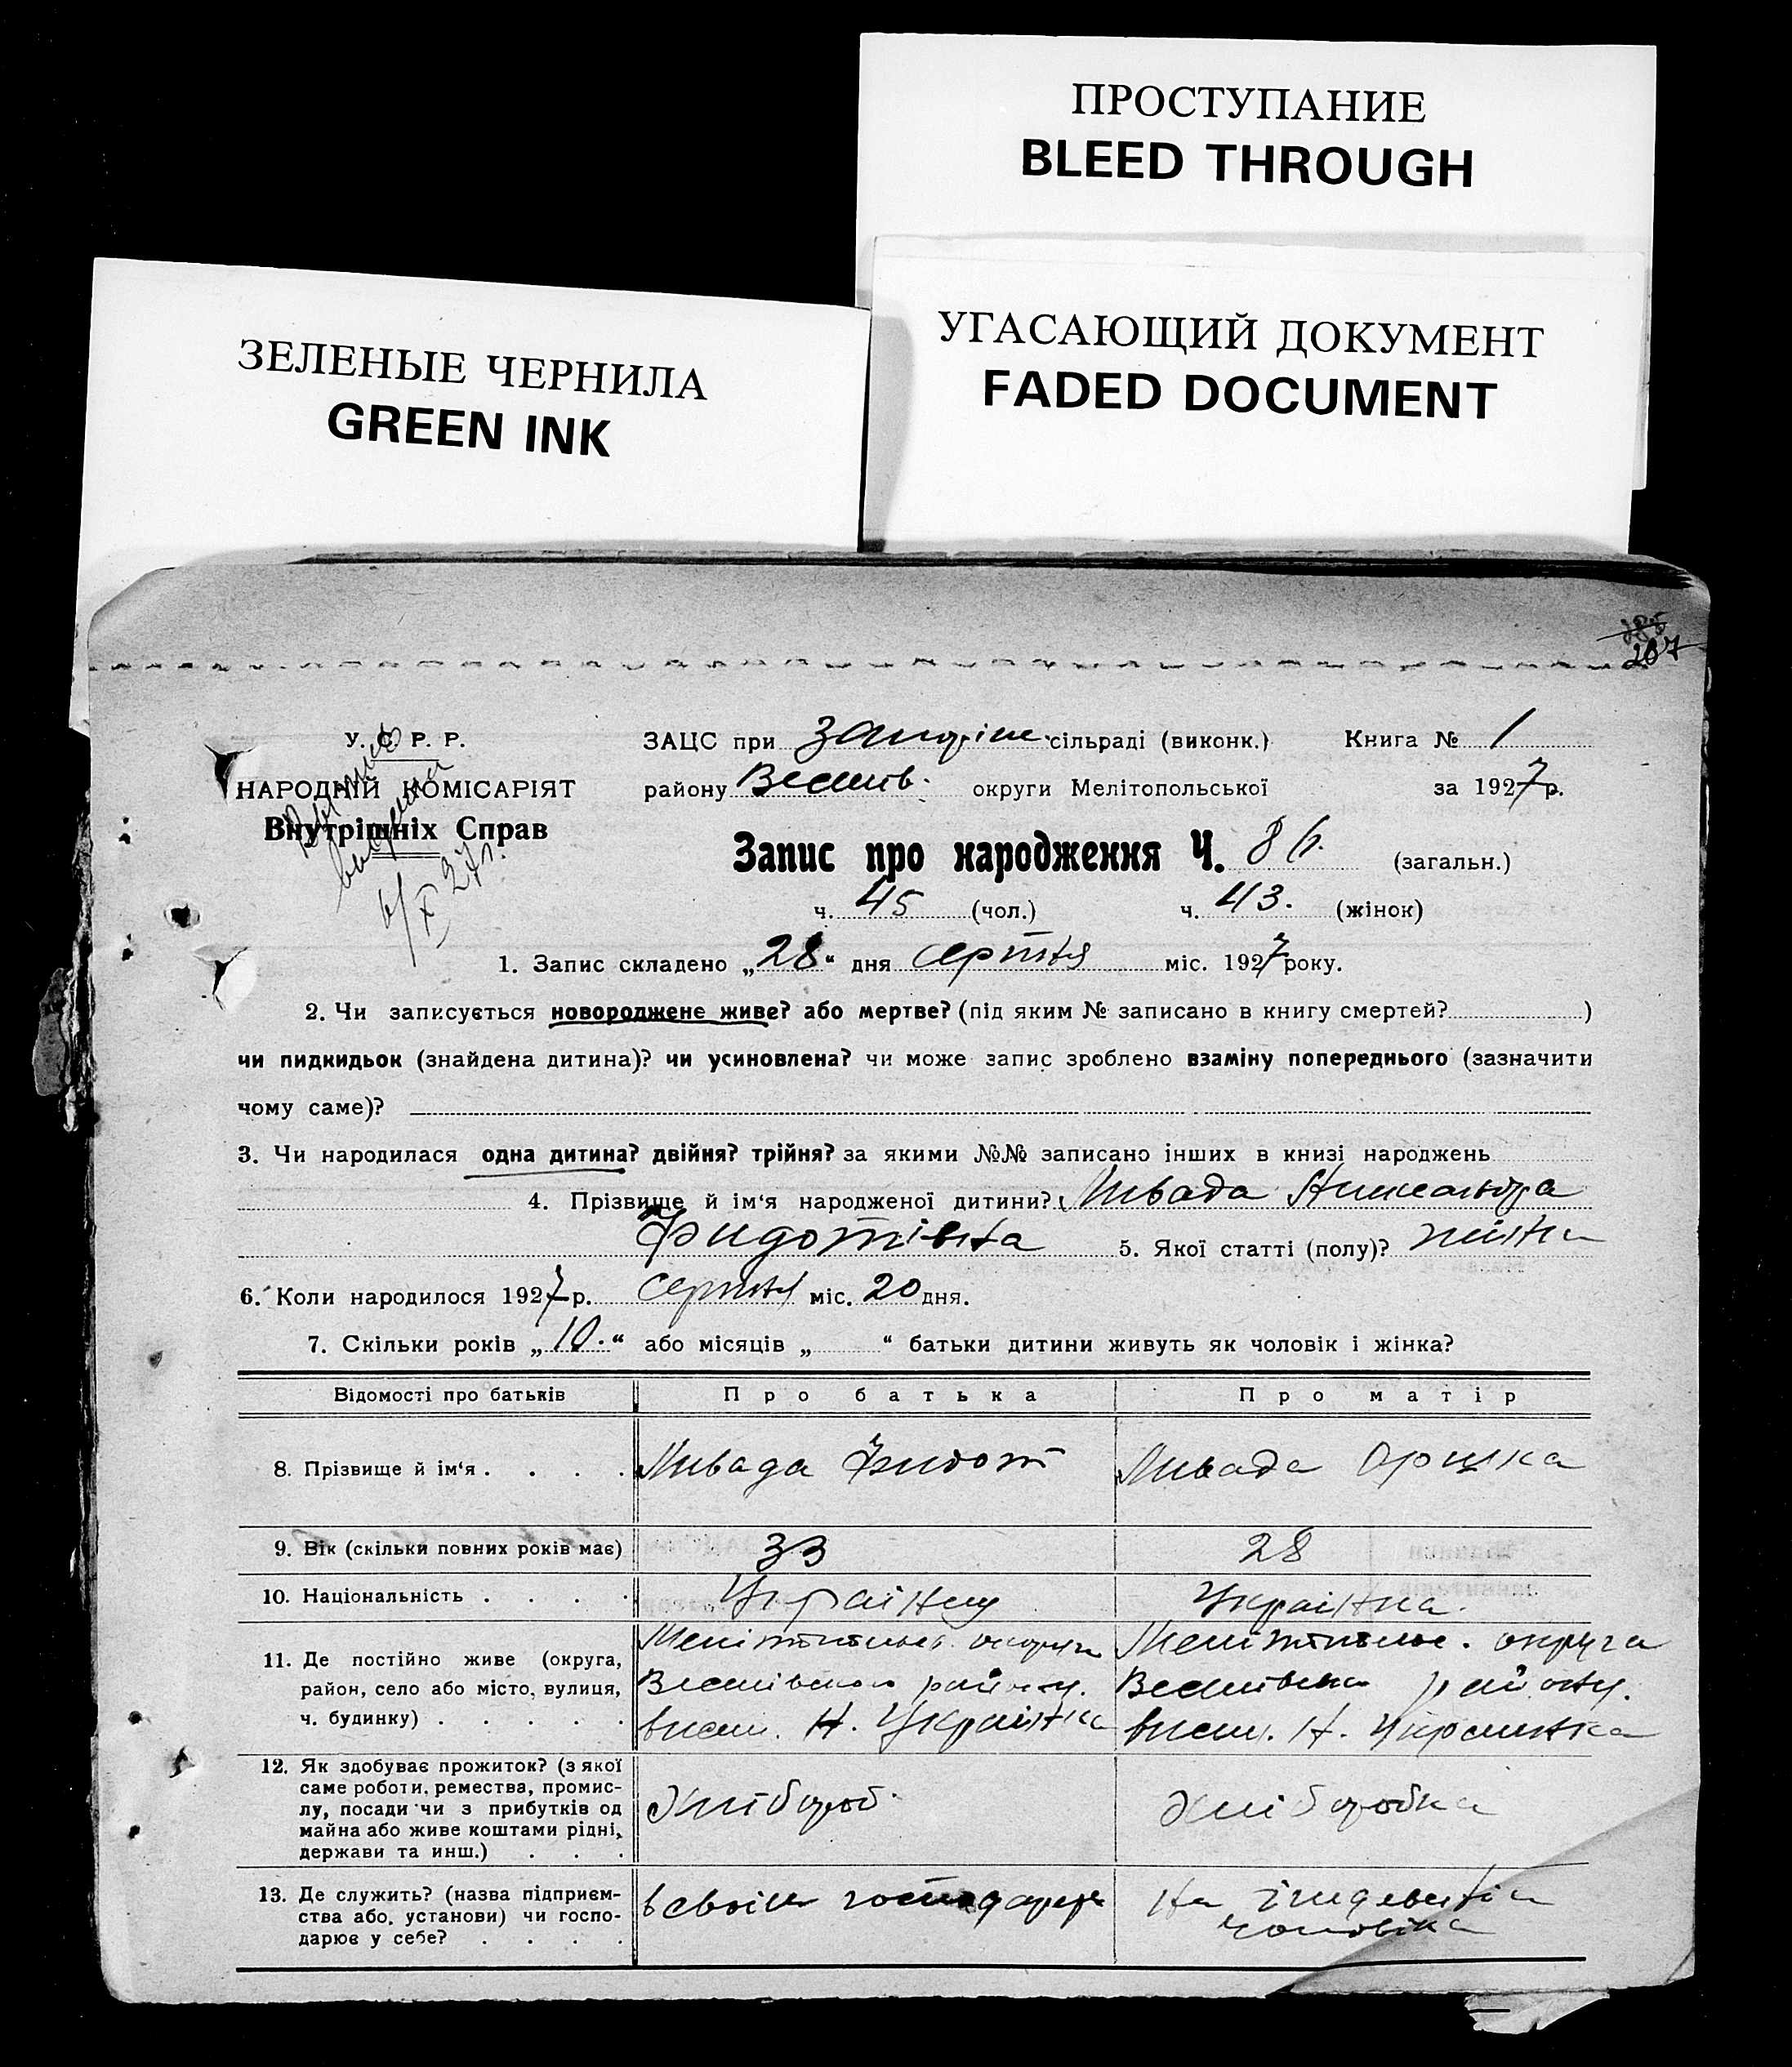 ПРОСТУПАНИЕ
BLEED THROUGH
УГАСАЮЩИЙ ДОКУМЕНТ
FADED DOCUMENT
ЗЕЛЕНЫЕ ЧЕРНИЛА
GREEN INK
207
У. С. Р. Р.
НАРОДНІЙ КОМІСАРІЯТ
Внутрішніх Справ
ЗАЦС при сільраді (виконк.) Книга № 1
району Веселів. округи Мелітопольської за 1927 р.
Запис про народження Ч. (загальн.)
ч. 45 (чол.) ч. 43. (жінок)
1. Запис складено „28“ дня серпня міс. 1927 року.
2. Чи записується новороджене живе? або мертве? (під яким № записано в книгу смертей? )
чи пидкидьок (знайдена дитина)? чи усиновлена? чи може запис зроблено взаміну попереднього (зазначити
чому саме)?
3. Чи народилася одна дитина? двійня? трійня? за якими №№ записано інших в книзі народжень
4. Прізвище й ім‘я народженої дитини? Ливада
Фидотівна 5. Якої статті (полу)?
6. Коли народилося 1927 р. серпня міс. 20 дня.
7. Скільки років „10.“ або місяців „ “ батьки дитини живуть як чоловік і жінка?
Відомості про батьків Про батька Про матір
8. Прізвище й ім‘я Ливада Фидот Ливада Оришка
9. Вік (скільки повних років має) 33 28
10. Національність Українец Українка.
11. Де постійно живе (округа, район, село або місто, вулиця, ч. будинку)
Мелітопольс. округа
Веселівского району.
висел. Н. Українка
Мелітопольс. округа
Веселівско району.
висел. Н. Українка
12. Як здобуває прожиток? (з якої саме роботи, ремества, промислу, посади чи з прибутків од майна або живе коштами рідні, держави та инш.)
Хлібороб.
Хліборобка
13. Де служить? (назва підприємства або установи) чи господарює у себе?
в своім господар
На
чоловіка